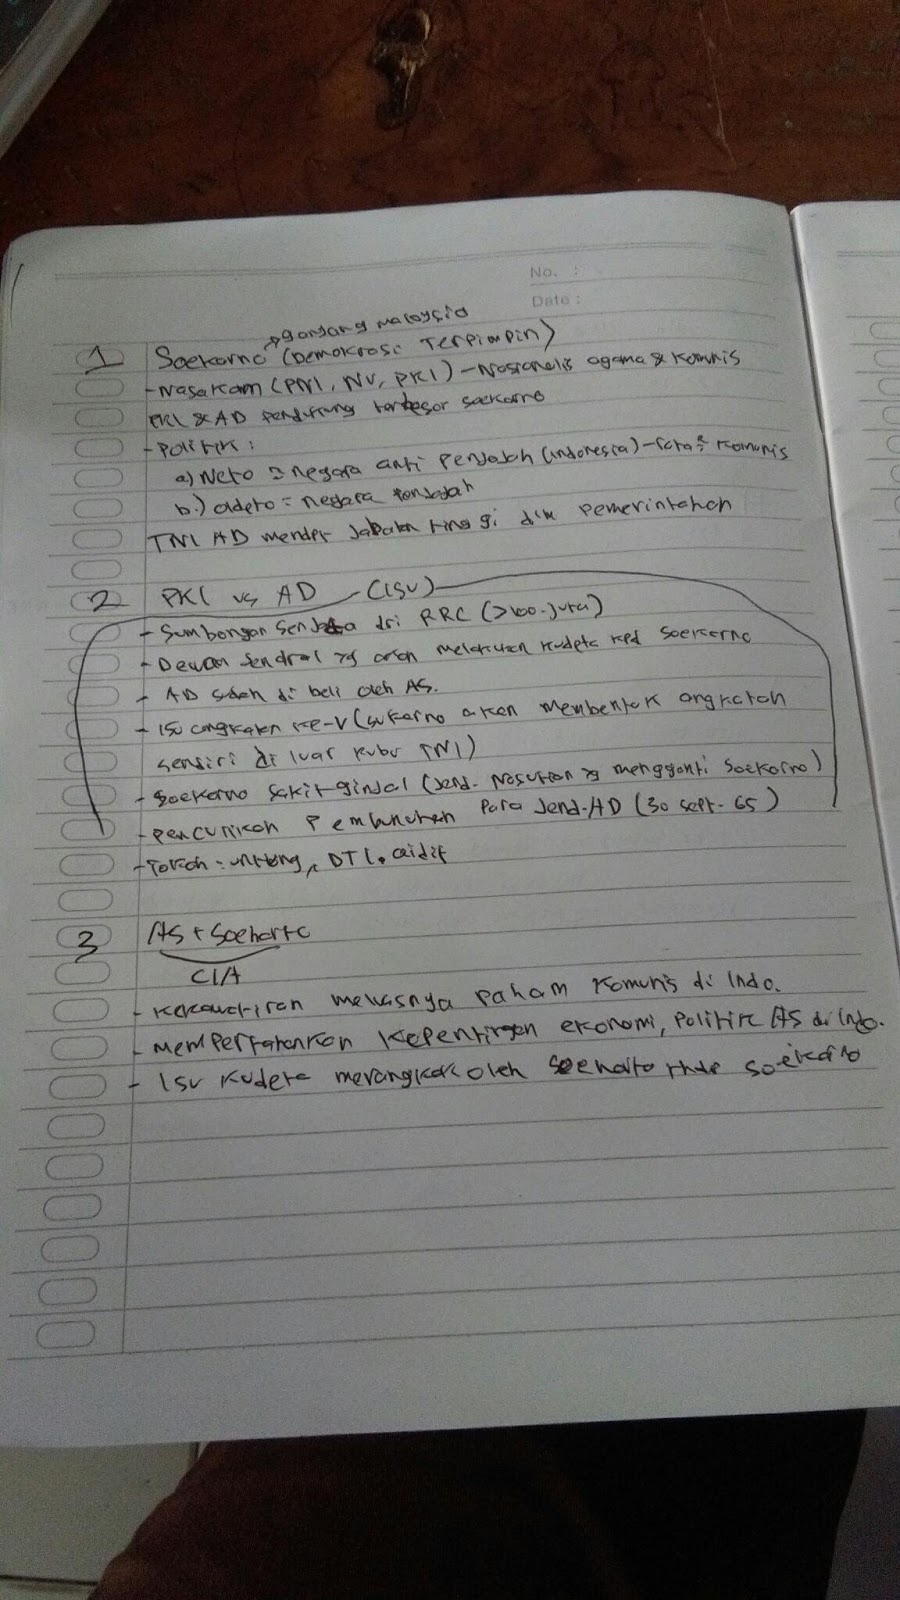 No. :
Date :
→ganyang malaysia
1 Soekarno (Demokrasi Terpimpin)
- Nasakom (PNI, NU, PKI) - Nasionalis agama & komunis
PKI & AD pendukung terbesar soekarno
- politik :
a) Nefo = negara anti penjajah (indonesia) - komunis
b.) oldefo = negara penjajah
TNI AD mendpt Jabatan tinggi dlm pemerintahan
2 PKI vs AD - (ISU)
- Sumbangan Senjata dri RRC (>100.juta)
- Dewan Jendral yg akan melakukan kudeta kpd Soekarno
- AD sdah di beli oleh AS.
- ISU angkatan ke-V (sukarno akan membentuk angkatan
sendiri di luar kubu TNI)
- Soekarno sakit ginjal (Jend. Nasution yg mengganti Soekarno)
- penculikan Pembunuhan para Jend.AD (30 sept. 65)
- Tokoh : untung, DTI. aidit
3 AS + Soeharto
CIA
- kekawatiran meluasnya paham Komunis di Indo.
- mempertahankan kepentingan ekonomi, politik AS di Indo.
- Isu kudeta merangkak oleh Soeharto thdp soekarno